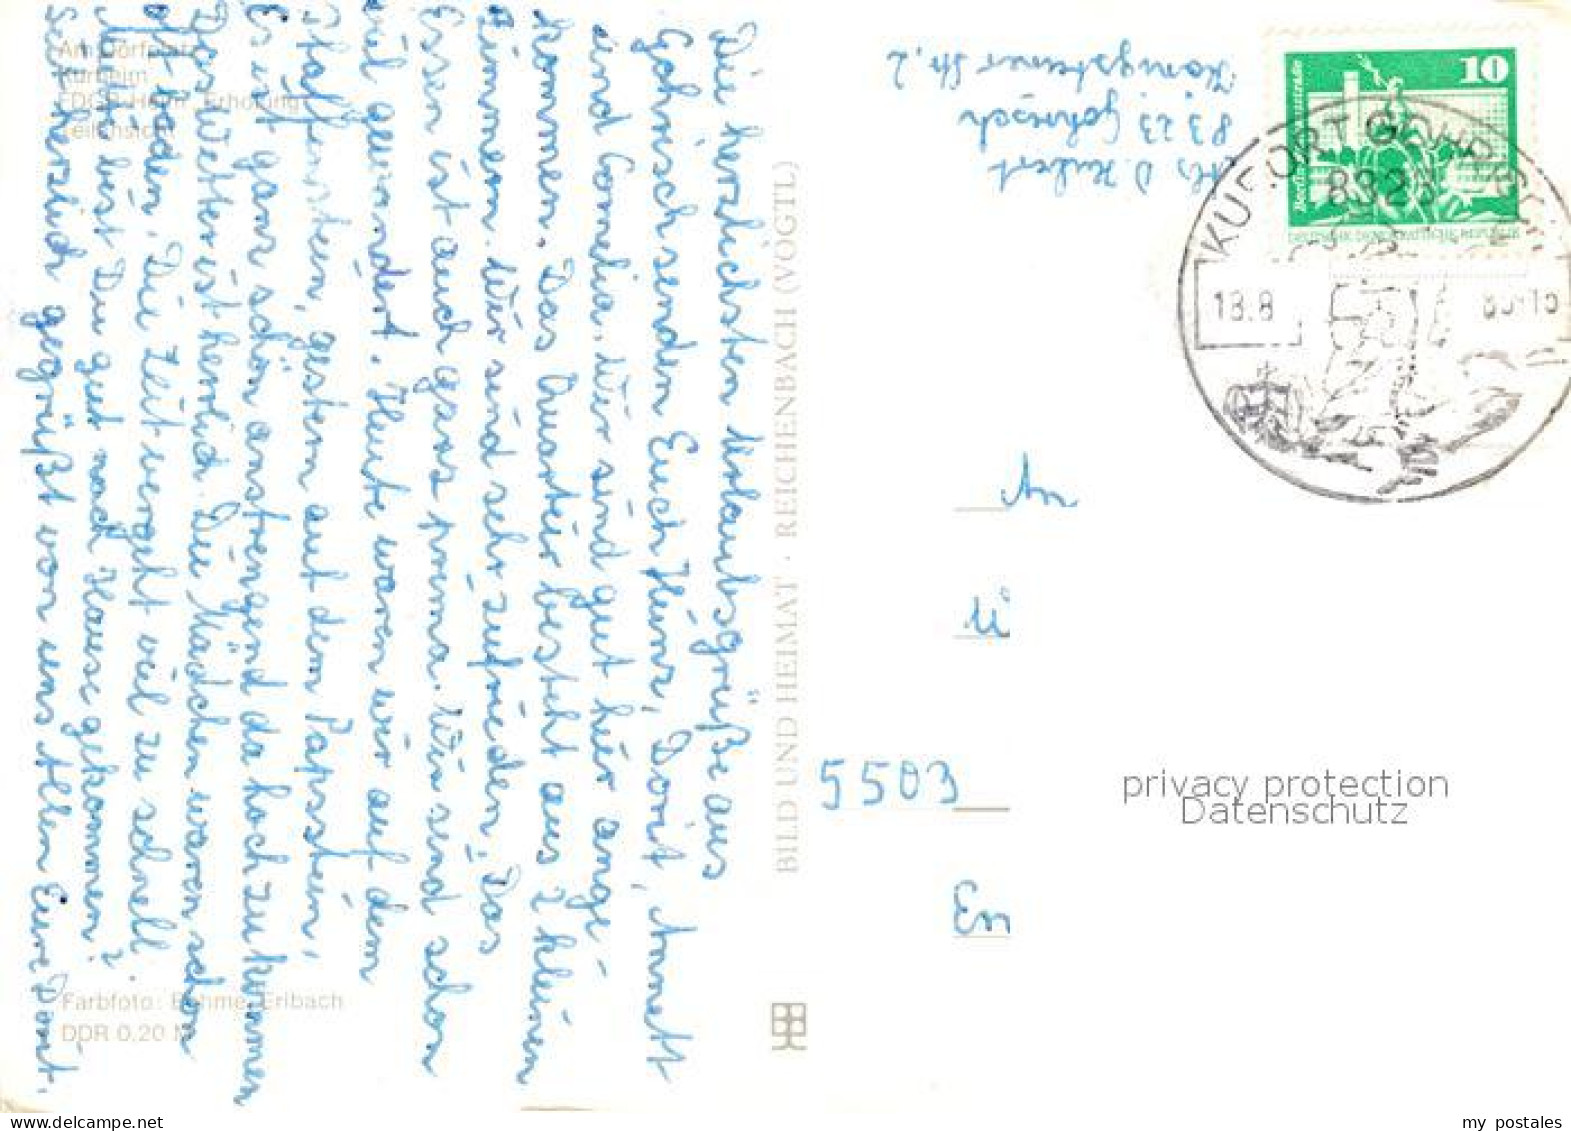 Am Dorfplatz
Kurheim
FDGB-Heim "Erholung"
Teilansicht
Die herzlichsten Urlaubsgrüße aus
Gohrisch senden Euch Heinz, Dorit, Annett
und Cornelia. Wir sind gut hier ange-
kommen. Das Quartier besteht aus 2 kleinen
Zimmern. Wir sind sehr zufrieden. Das
Essen ist auch ganz prima. Wir sind schon
viel gewandert. Heute waren wir auf dem
Pfaffenstein, gestern auf dem Papststein,
Es ist ganz schön anstrengend da hoch zu kommen
Das Wetter ist herrlich. Die Mädchen waren schon
oft baden. Die Zeit vergeht viel zu schnell.
bist Du gut nach Hause gekommen?
Seit herzlich gegrüßt von uns Allen Eure Dorit.
Farbfoto: Böhme, Erlbach
DDR 0.20 M
BILD UND HEIMAT · REICHENBACH (VOGTL)
D. Hubert
8323 Gohrisch
Königsteiner Str. 2
10
DEUTSCHE DEMOKRATISCHE REPUBLIK
KURORT GOHRISCH
8323
18.8
An
5503
privacy protection
Datenschutz
my postales